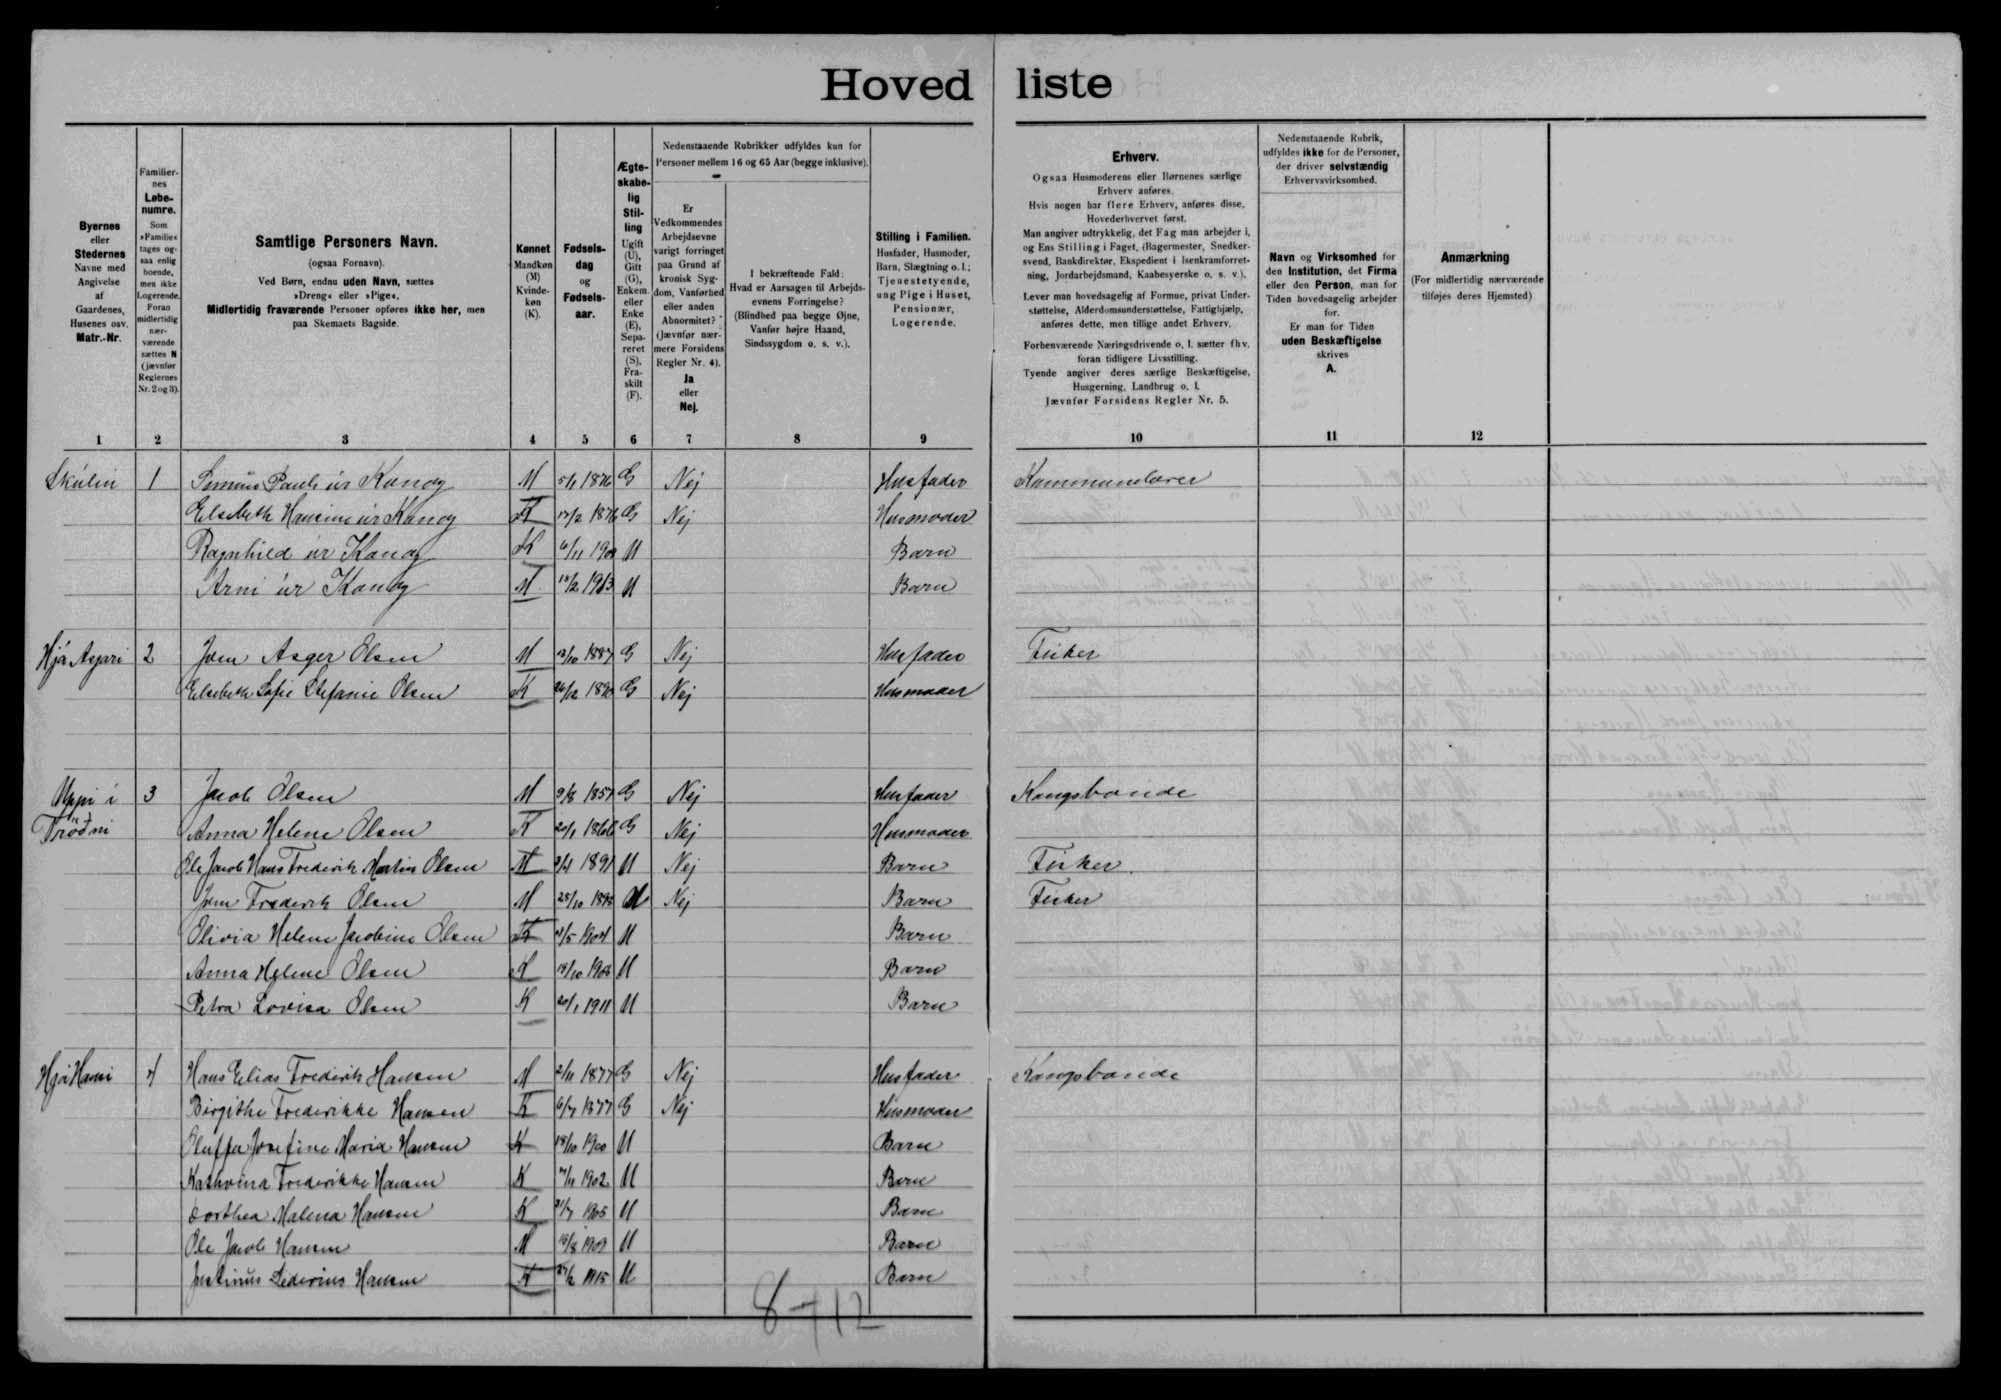 Hovedliste
Byernes eller Stedernes Navne med Angivelse af Gaardenes, Husenes osv. Matr.-Nr.
Familiernes Løbenumre. Som »Familie« tages ogsaa enlig boende, men ikke Logerende. Foran midlertidig nærværende sættes N (jævnfør Reglernes Nr. 2 og 3).
Samtlige Personers Navn.
(ogsaa Fornavn).
Ved Børn, endnu uden Navn, sættes »Dreng« eller »Pige«.
Midlertidig fraværende Personer opføres ikke her, men paa Skemaets Bagside.
Kønnet Mandkøn (M) Kvindekøn (K).
Fødselsdag og Fødselsaar.
Ægteskabelig Stilling Ugift (U), Gift (G), Enkem. eller Enke (E), Separeret (S), Fraskilt (F).
Nedenstaaende Rubrikker udfyldes kun for Personer mellem 16 og 65 Aar (begge inklusive).
Er Vedkommendes Arbejdsevne varigt forringet paa Grund af kronisk Sygdom, Vanførhed eller anden Abnormitet? (Jævnfør nærmere Forsidens Regler Nr. 4). Ja eller Nej.
I bekræftende Fald: Hvad er Aarsagen til Arbejdsevnens Forringelse? (Blindhed paa begge Øjne, Vanfør højre Haand, Sindssygdom o. s. v.).
Stilling i Familien. Husfader, Husmoder, Barn, Slægtning o. l.; Tjenestetyende, ung Pige i Huset, Pensionær, Logerende.
Erhverv.
Ogsaa Husmoderens eller Børnenes særlige Erhverv anføres.
Hvis nogen har flere Erhverv, anføres disse, Hovederhvervet først.
Man angiver udtrykkelig, det Fag man arbejder i, og Ens Stilling i Faget, (Bagermester, Snedkersvend, Bankdirektør, Ekspedient i Isenkramforretning, Jordarbejdsmand, Kaabesyerske o. s. v.).
Lever man hovedsagelig af Formue, privat Understøttelse, Alderdomsunderstøttelse, Fattighjælp, anføres dette, men tillige andet Erhverv.
Forhenværende Næringsdrivende o. l. sætter fhv. foran tidligere Livsstilling.
Tyende angiver deres særlige Beskæftigelse, Husgerning, Landbrug o. l.
Jævnfør Forsidens Regler Nr. 5.
Nedenstaaende Rubrik, udfyldes ikke for de Personer, der driver selvstændig Erhvervsvirksomhed.
Navn og Virksomhed for den Institution, det Firma eller den Person, man for Tiden hovedsagelig arbejder for.
Er man for Tiden uden Beskæftigelse skrives A.
Anmærkning
(For midlertidig nærværende tilføjes deres Hjemsted)
1 2 3 4 5 6 7 8 9 10 11 12
Skúlin 1 Símun Pauli úr Konoy M 5/1 1876 G Nej Husfader Kommunelærer
Elsebeth Hansine úr Konoy K 1876 G Nej Husmoder
Ragnhild úr Konoy K U Barn
Arni úr Konoy M 1913 U Barn
Hjá Asgari 2 Joen Asger Olsen M 1887 G Nej Husfader Fisker
Elsebeth Sofie Stefanie Olsen K G Nej Husmoder
Uppi í Trøðni 3 Jacob Olsen M 1857 G Nej Husfader Kongsbonde
Anna Helene Olsen K 20/1 1866 G Nej Husmoder
Ole Jacob Hans Frederik Martin Olsen M 1891 U Nej Barn Fisker.
Joen Frederik Olsen M U Nej Barn Fisker
Olivia Helene Jacobine Olsen K 1904 U Barn
Anna Helene Olsen K U Barn
Petra Lovisa Olsen K 20/1 1911 U Barn
Hjá Hansi 4 Hans Elias Frederik Hansen M 2/11 1877 G Nej Husfader Kongsbonde
Birgithe Frederikke Hansen K 6/7 1877 G Nej Husmoder
Oluffa Josefine Maria Hansen K 18/10 1900 U Barn
Kathrina Frederikke Hansen K 1902 U Barn
Dorthea Malena Hansen K 1905 U Barn
Ole Jacob Hansen M U Barn
Justinus Liderius Hansen K 1915 U Barn
8+12